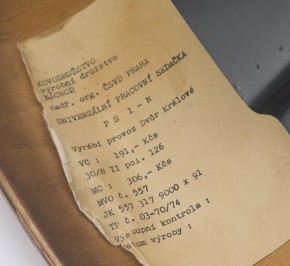 KOVODRUŽSTVO
výrobní družstvo
NÁCHOD
nadř. org. ČSVD PRAHA
UNIVERZÁLNÍ PRACOVNÍ SEDAČKA
P S 1 - N
Vyrábí provoz Dvůr Králové
VC : 191,- Kčs
30/8 II pol. 126
MC : 306,- Kčs
MVO č. 557
JK 557 317 9000 x 91
TP č. 03-70/74
Výstupní kontrola :
datum výroby :